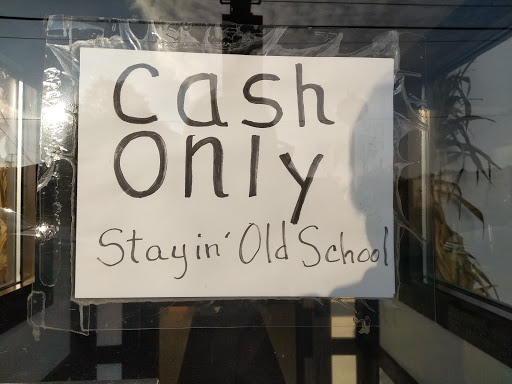 Cash
Only
Stayin' Old School